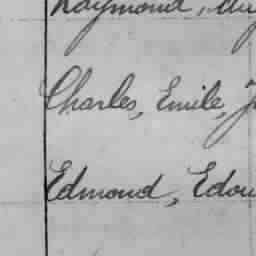 Raymond, Au
Charles, Emile, J
Edmond, Edou